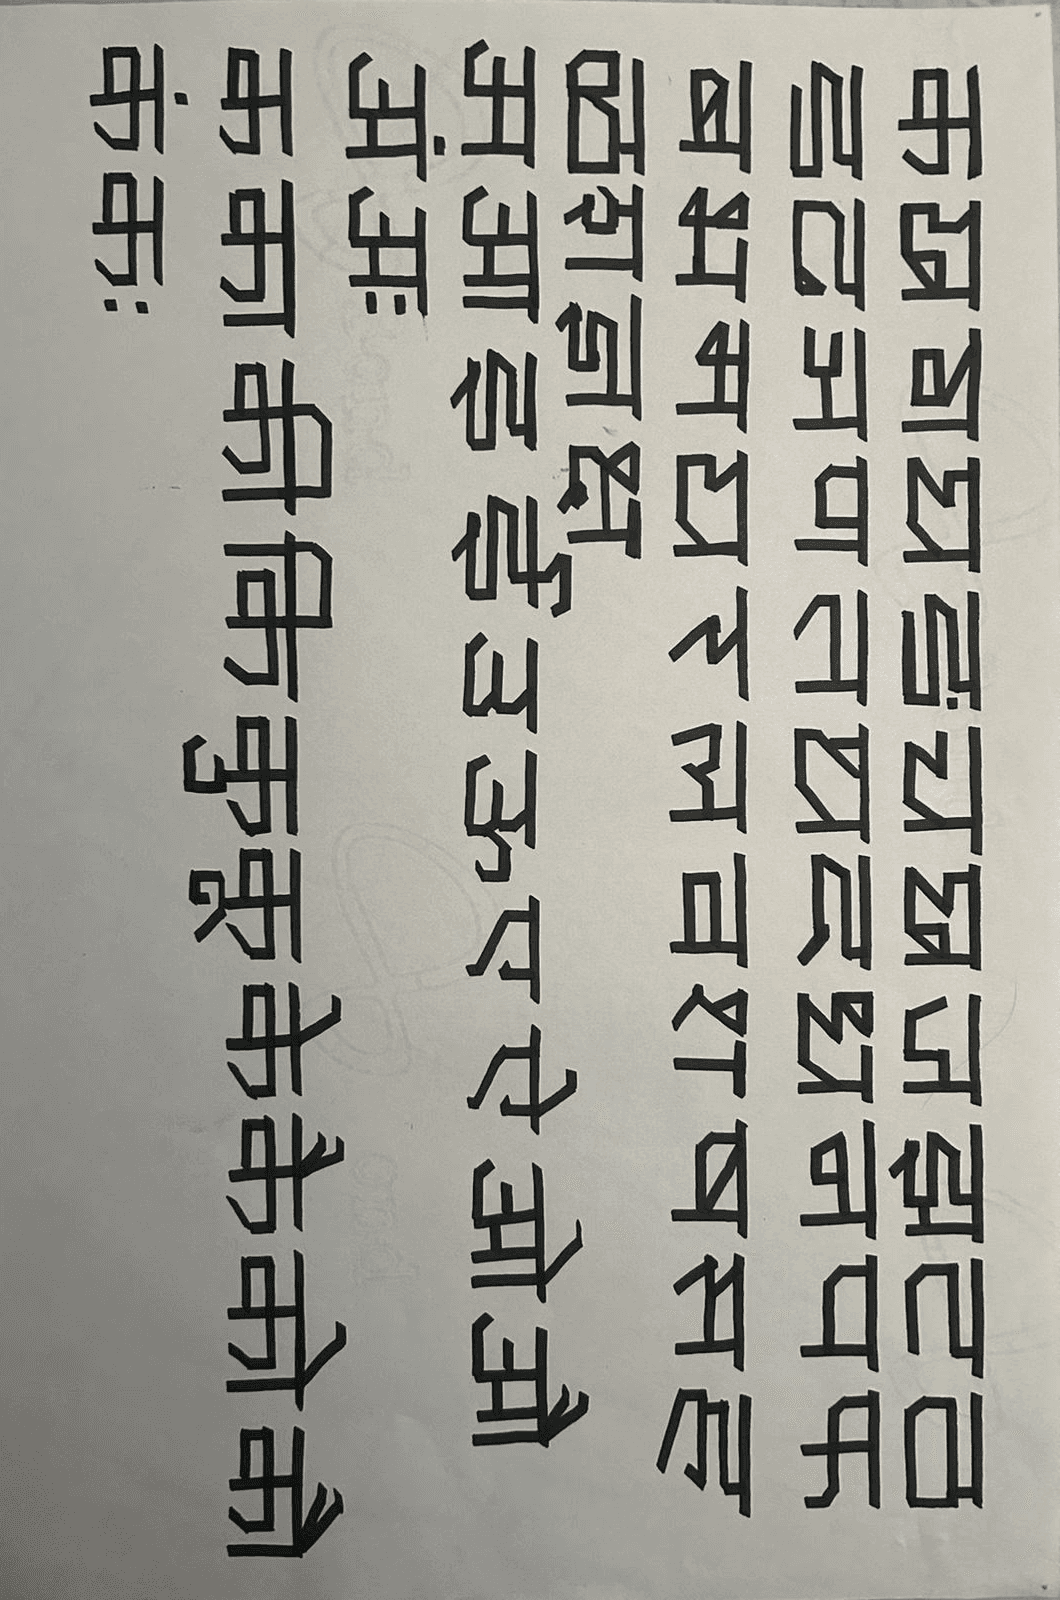 क ख ग घ ङ च छ ज झ ट ठ
ड ढ ञ ण त थ द ध न प फ
ब भ म य र ल व श ष स ह
ळ ज्ञ क्ष
अ आ इ ई उ ऊ ए ऐ ओ औ
अं अः
क का की कि कु कू के कै को कौ
कं कः